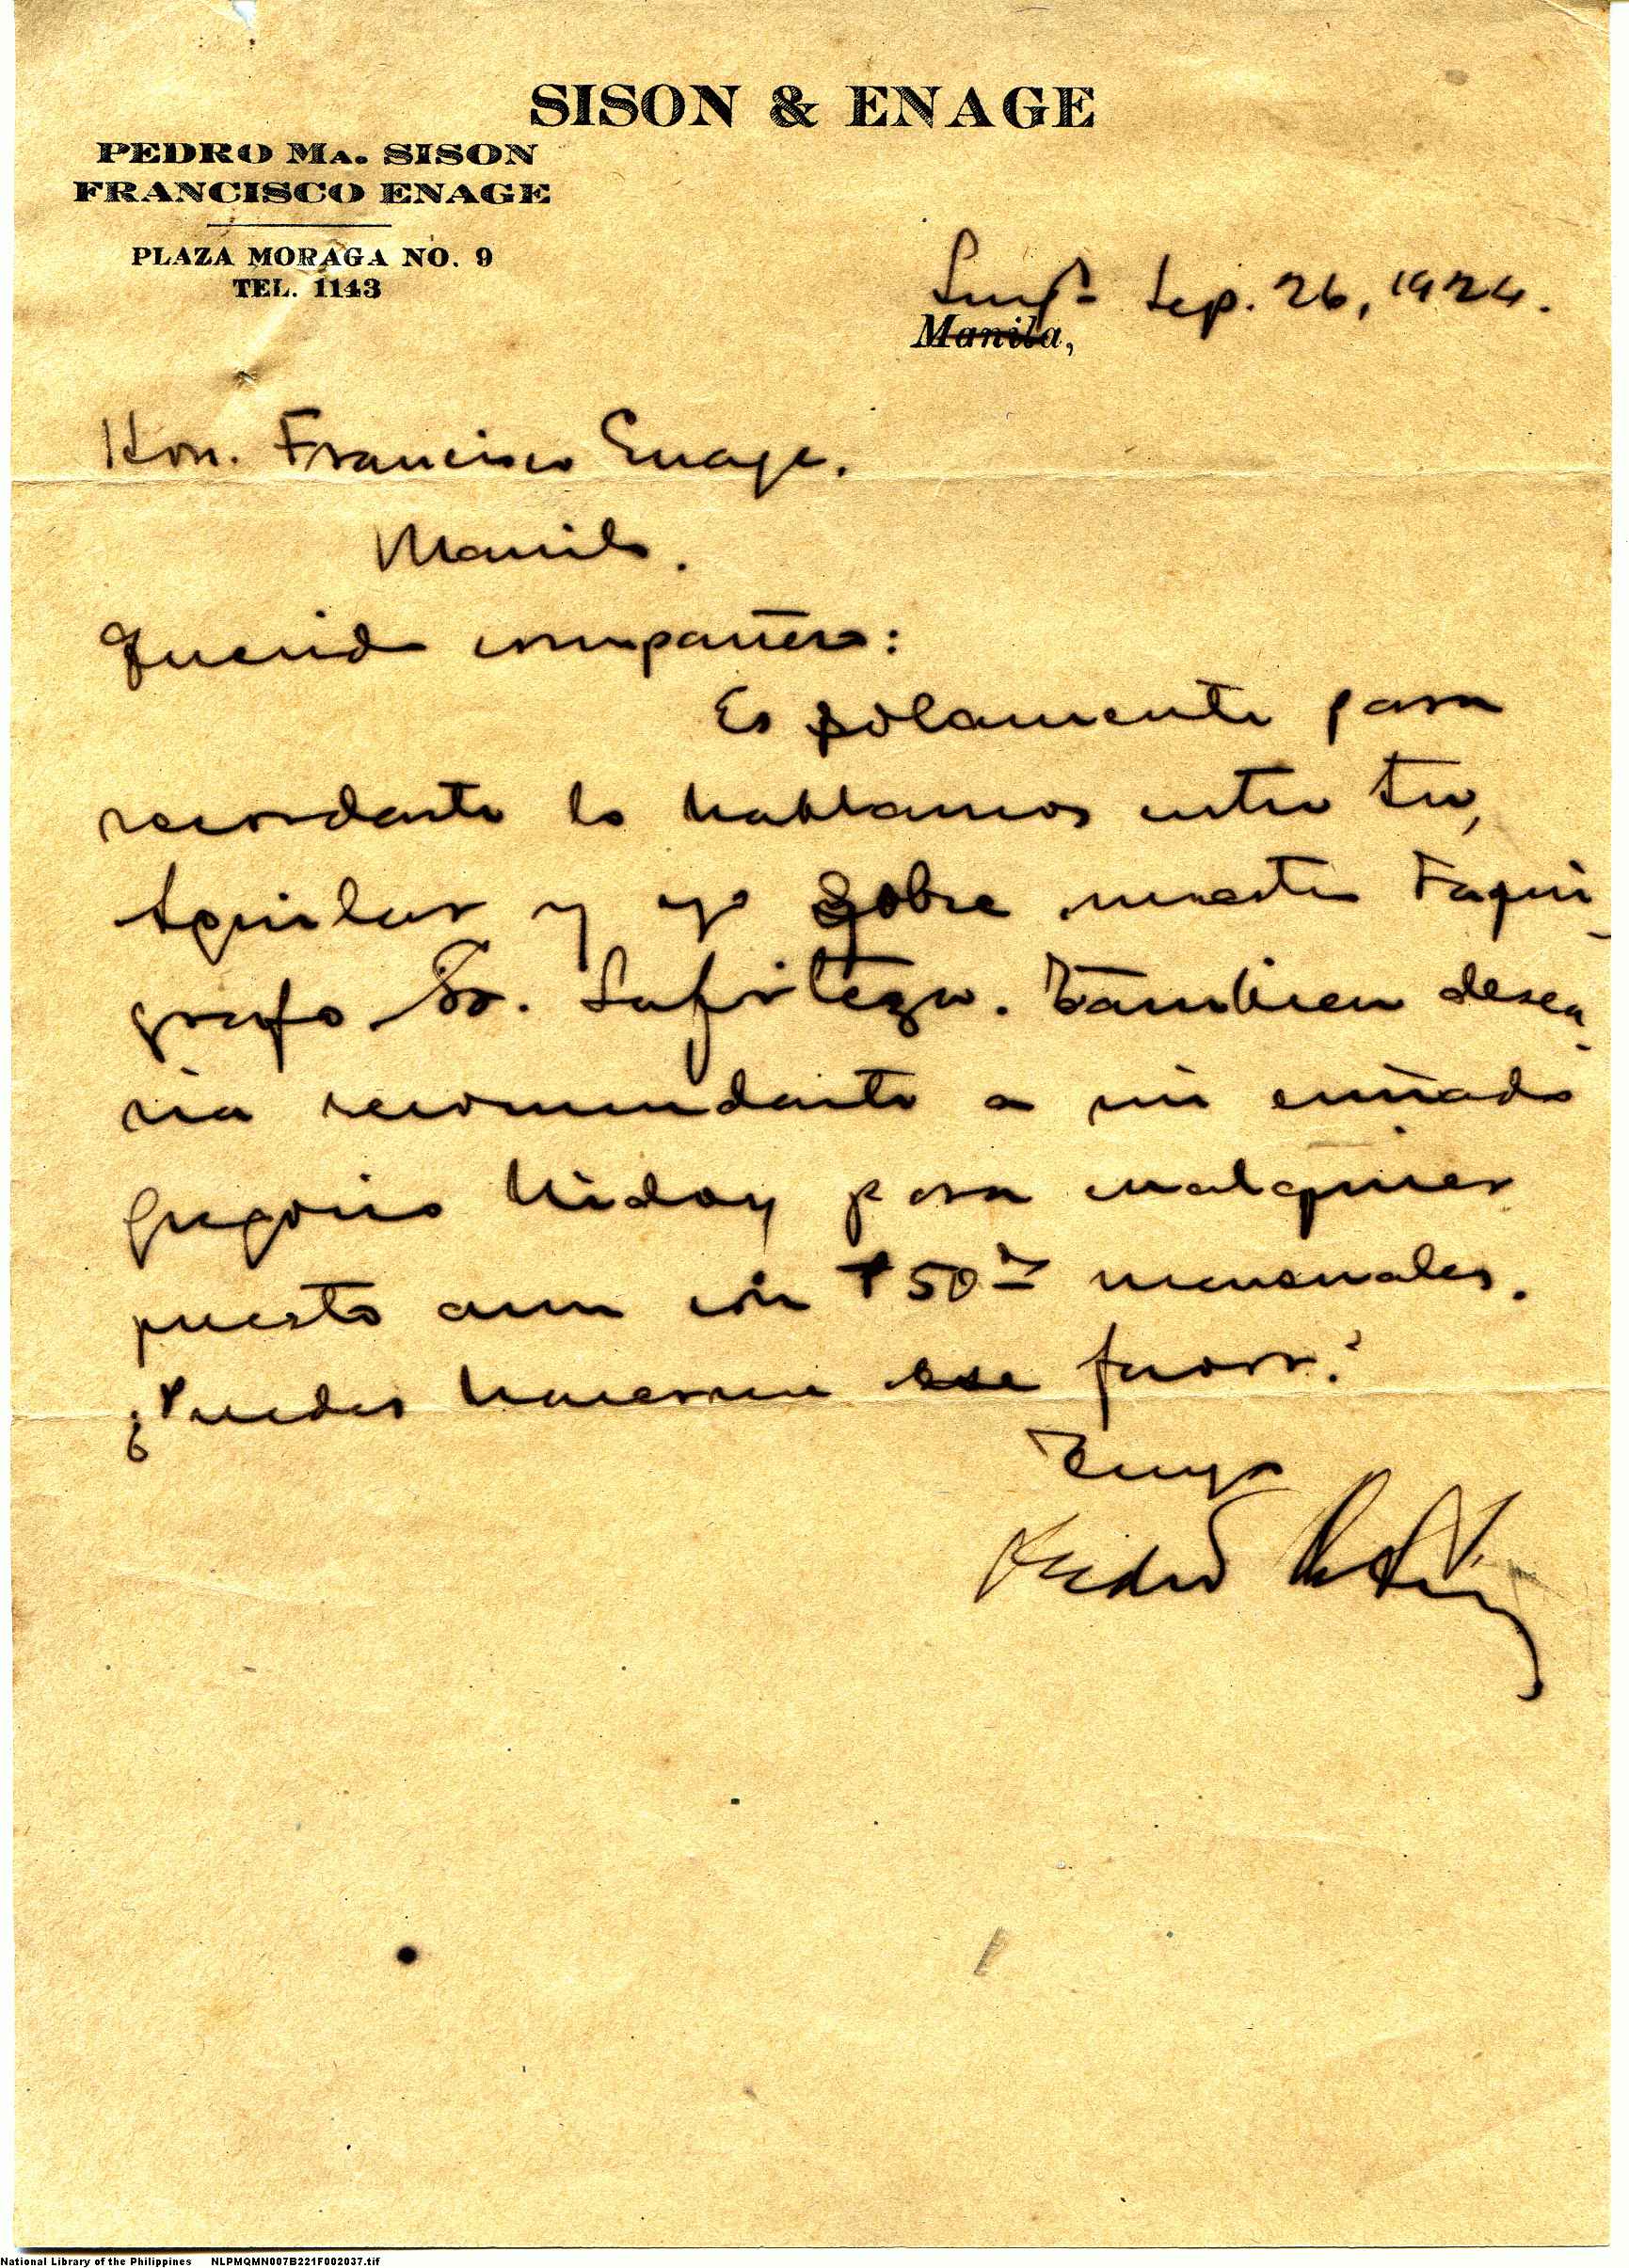 SISON & ENAGE
PEDRO MA. SISON
FRANCISCO ENAGE
PLAZA MORAGA NO. 9
TEL. 1143
Sep. 26, 1924.
Manila,
Hon. Francisco Enage.
Manila.
Querido compañero:
Es solamente para
recordarte lo hablamos entre tu,
Aguilar y yo sobre nuestro Taqui-
grafo Sr. Tambien desea-
ria recomendarte a mi cuñado
Gregorio para cualquier
puesto aun con ₱50 mensuales.
¿Puedes hacerme ese favor?
Tuyo
Pedro
National Library of the Philippines NLPMQMN007B221F002037.tif